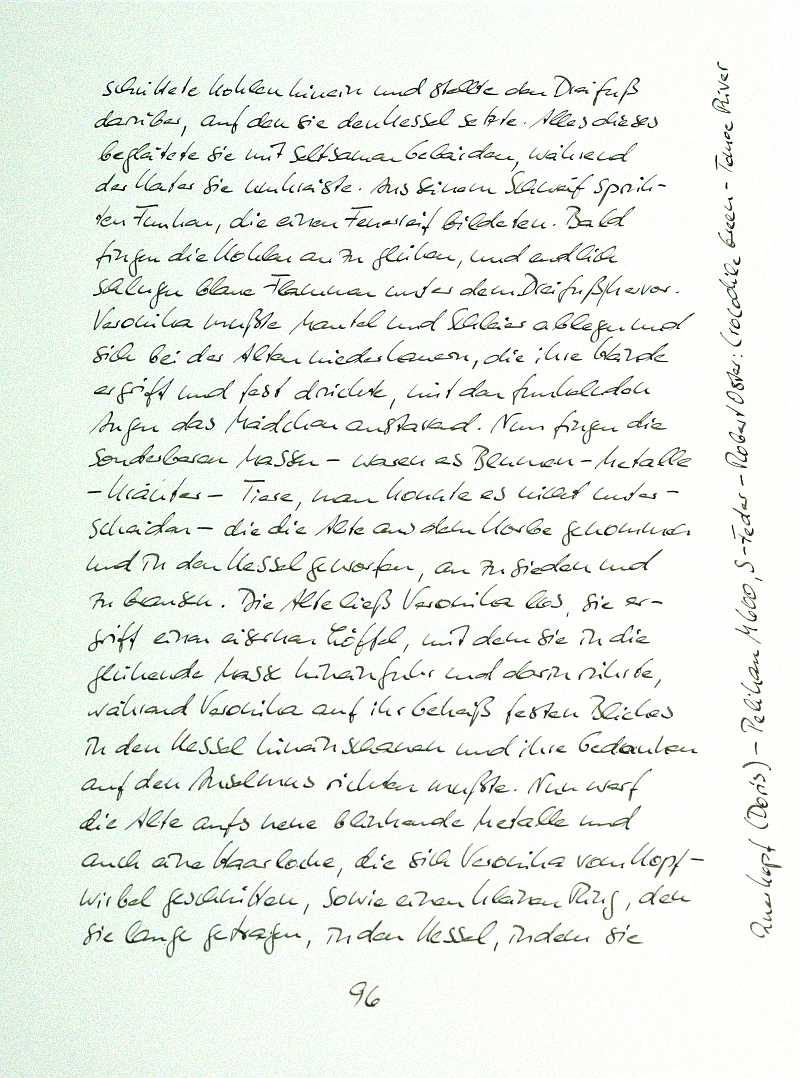 schüttete Kohlen hinein und stellte den Dreifuß
darüber, auf den sie den Kessel setzte. Alles dieses
begleitete sie mit seltsamen Gebärden, während
der Kater sie umkreiste. Aus seinem Schweif sprüh-
ten Funken, die einen Feuerreif bildeten. Bald
fingen die Kohlen an zu glühen, und endlich
schlugen blaue Flammen unter dem Dreifuß hervor.
Veronika mußte Mantel und Schleier ablegen und
sich bei der Alten niederkauern, die ihre Hände
ergriff und fest drückte, mit den funkelnden
Augen das Mädchen anstarrend. Nun fingen die
sonderbaren Massen – waren es Blumen – Metalle
– Kräuter – Tiere, man konnte es nicht unter-
scheiden – die die Alte aus dem Korbe genommen
und in den Kessel geworfen, an zu sieden und
zu brausen. Die Alte ließ Veronika los, sie er-
griff einen eisernen Löffel, mit dem sie in die
glühende Masse hineinfuhr und darin rührte,
während Veronika auf ihr Geheiß festen Blickes
in den Kessel hineinschauen und ihre Gedanken
auf den Anselmus richten mußte. Nun warf
die Alte aufs neue blinkende Metalle und
auch eine Haarlocke, die sich Veronika vom Kopf-
wirbel geschnitten, sowie einen kleinen Ring, den
sie lange getragen, in den Kessel, indem sie
96
Querkopf (Doris) – Pelikan M600, S-Feder – Robert Oster: Crocodile Green – Tomoe River